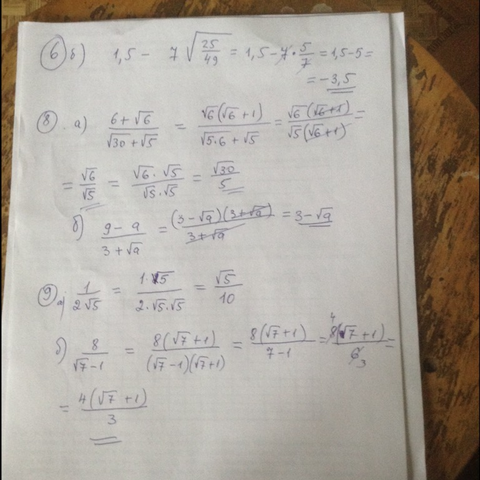 6 б) 1,5 - 7√(25/49) = 1,5 - 7 · 5/7 = 1,5 - 5 =
= -3,5
8. а) (6 + √6)/(√30 + √5) = √6(√6 + 1)/(√5·6 + √5) = √6(√6 + 1)/√5(√6 + 1) =
= √6/√5 = (√6 · √5)/(√5 · √5) = √30/5
б) (9 - a)/(3 + √a) = (3 - √a)(3 + √a)/(3 + √a) = 3 - √a
9 а) 1/(2√5) = (1·√5)/(2·√5·√5) = √5/10
б) 8/(√7 - 1) = 8(√7 + 1)/(√7 - 1)(√7 + 1) = 8(√7 + 1)/(7 - 1) = 8 4(√7 + 1)/6 3 =
= 4(√7 + 1)/3